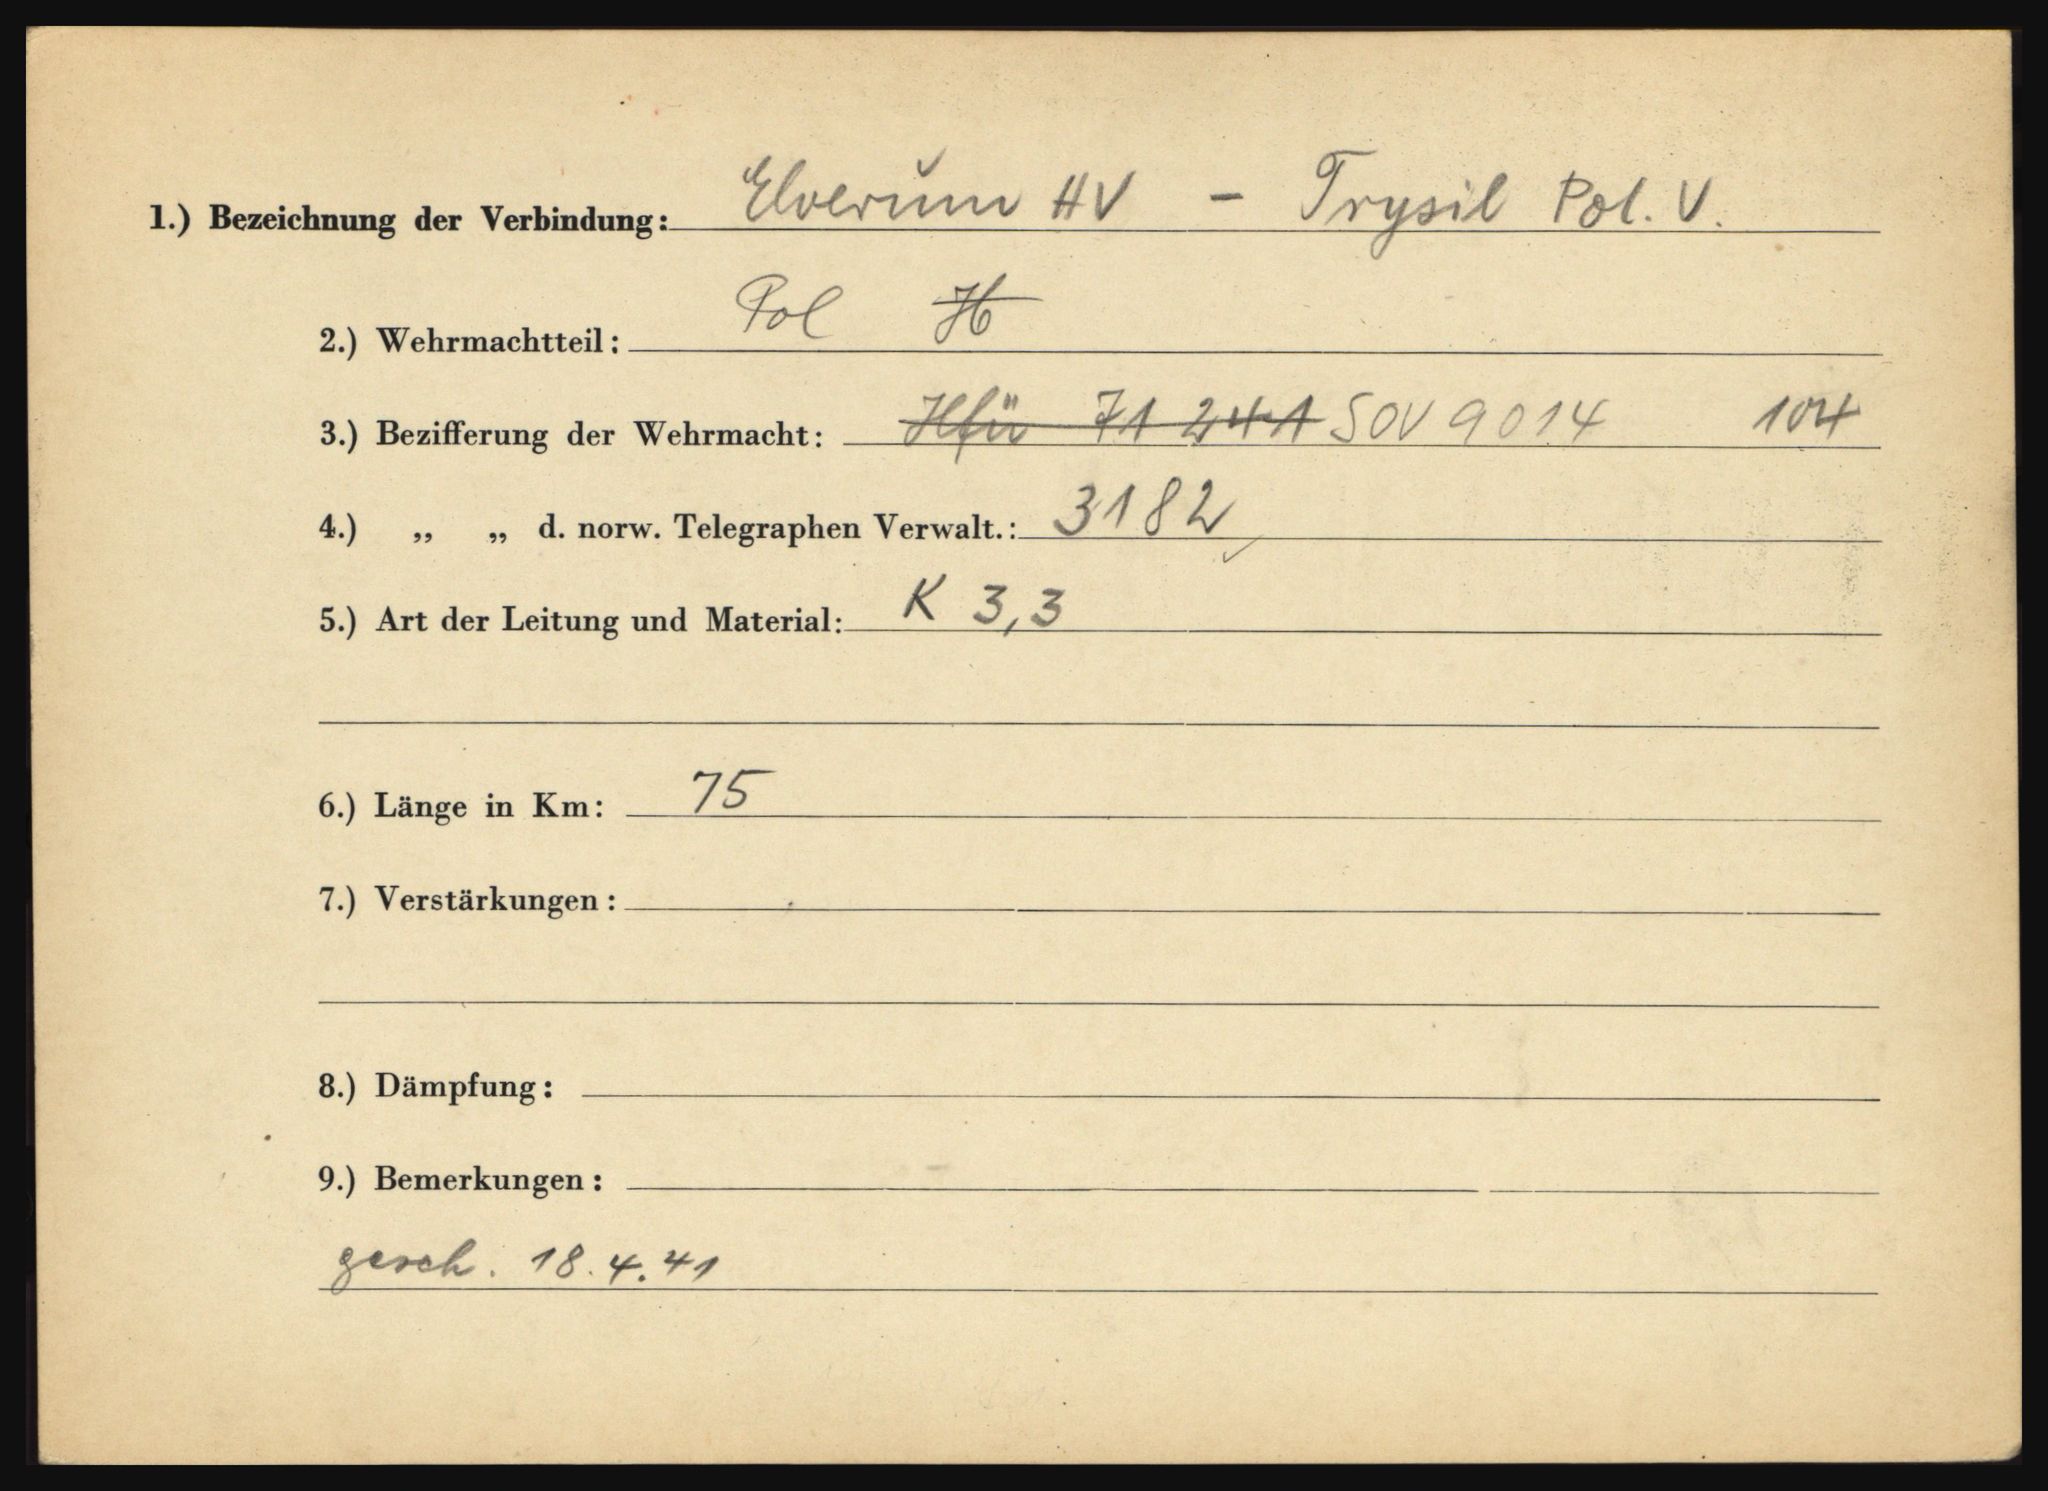 1.) Bezeichnung der Verbindung: Elverum HV – Trysil Pol. V.
2.) Wehrmachtteil: Pol H
3.) Bezifferung der Wehrmacht: Hfü 71 241 SOV 9014 104
4.) „ „ d. norw. Telegraphen Verwalt.: 3182
5.) Art der Leitung und Material: K 3,3
6.) Länge in Km: 75
7.) Verstärkungen:
8.) Dämpfung:
9.) Bemerkungen:
gesch. 18.4.41